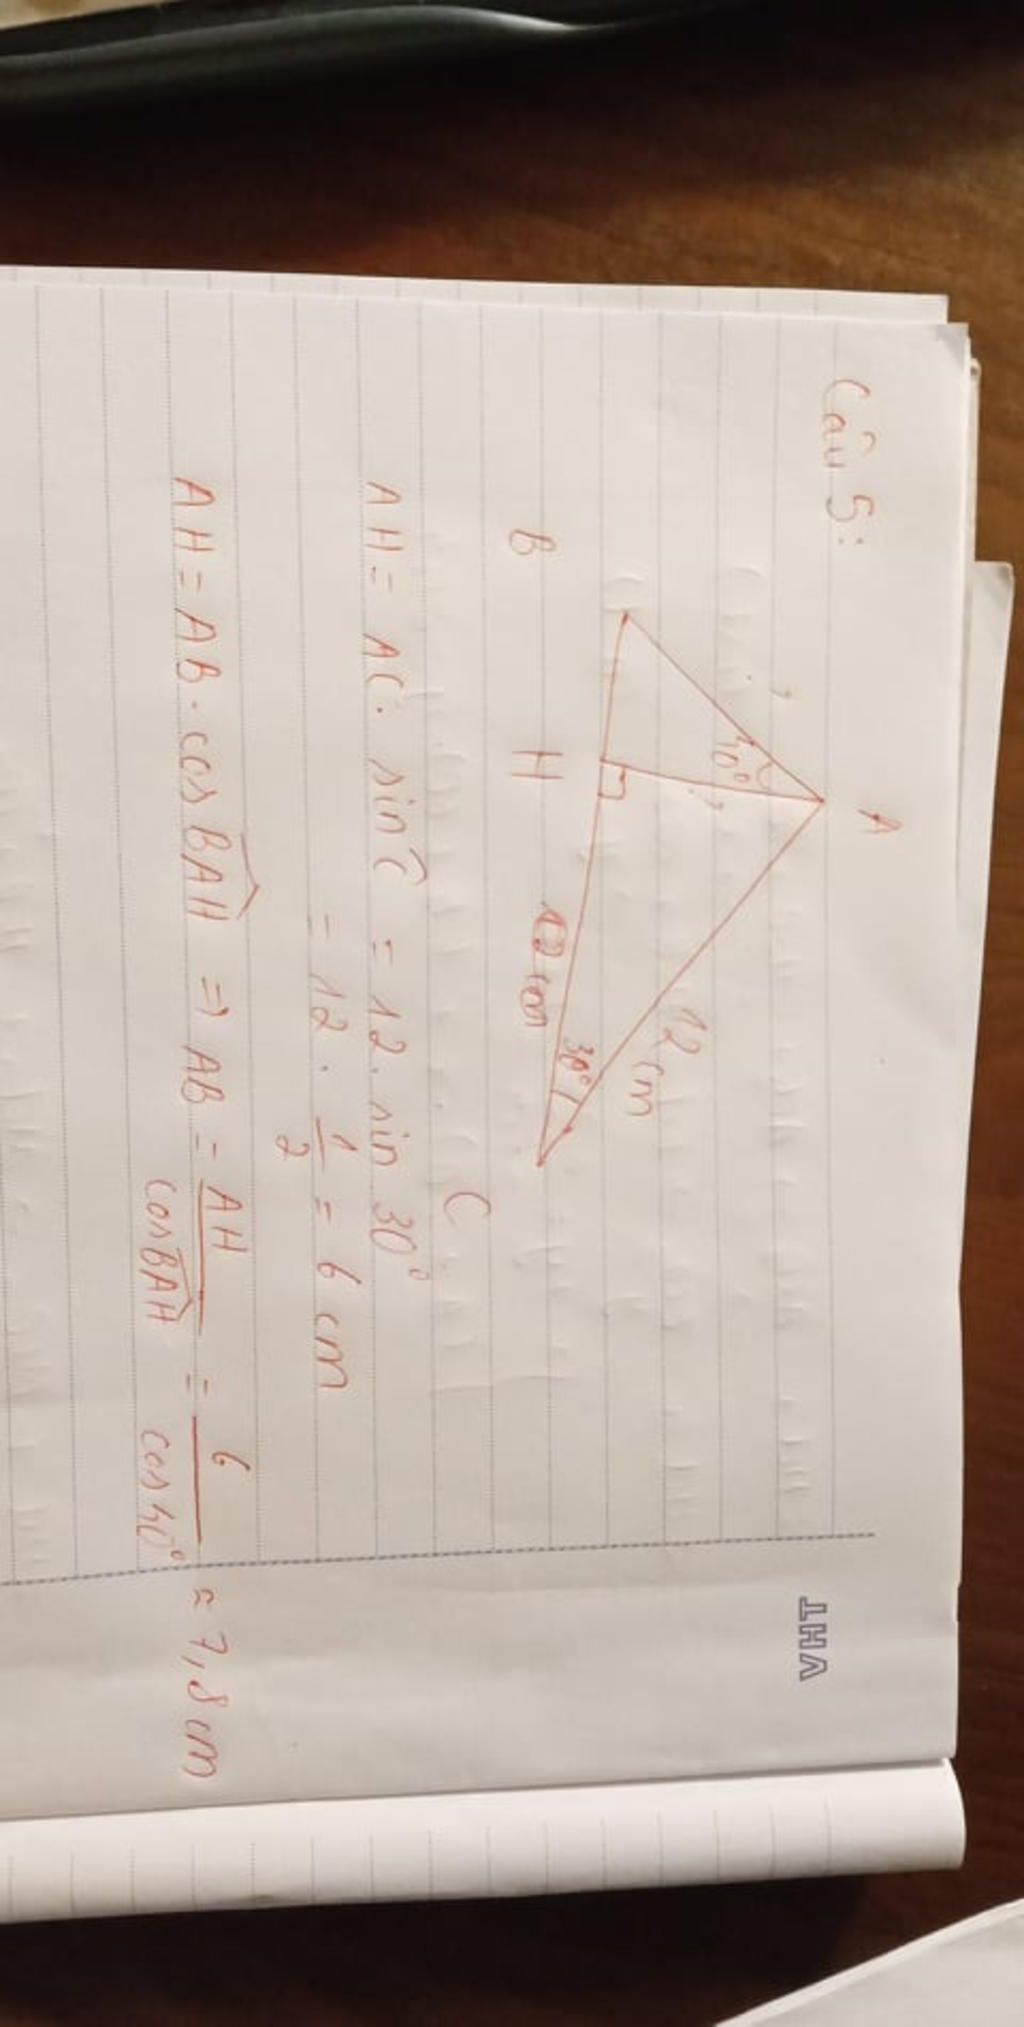 VHT
Câu 5:
A
40°
?
?
12 cm
30°
12 cm
B
H
C
AH = AC. sin Ĉ = 12. sin 30°
= 12 . 1/2 = 6 cm
AH = AB . cos BAH ⇒ AB = AH / cos BAH = 6 / cos 40° ≈ 7,8 cm